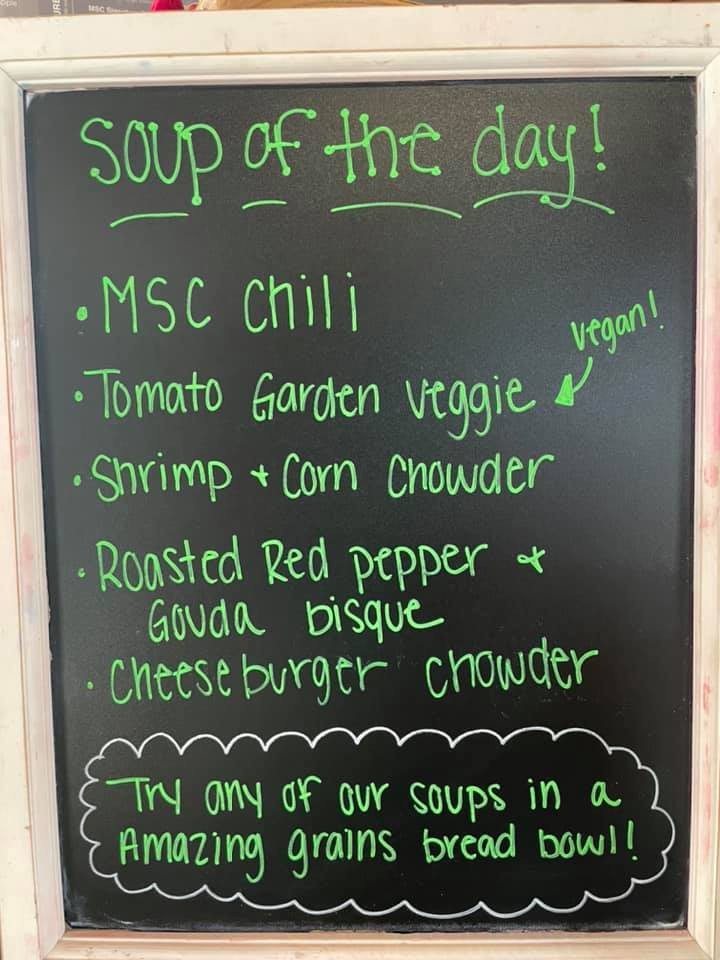 Soup of the day!
• MSC Chili
vegan!
• Tomato Garden veggie
• Shrimp + Corn Chowder
• Roasted Red pepper &
Gouda bisque
• Cheeseburger chowder
Try any of our soups in a
Amazing grains bread bowl!